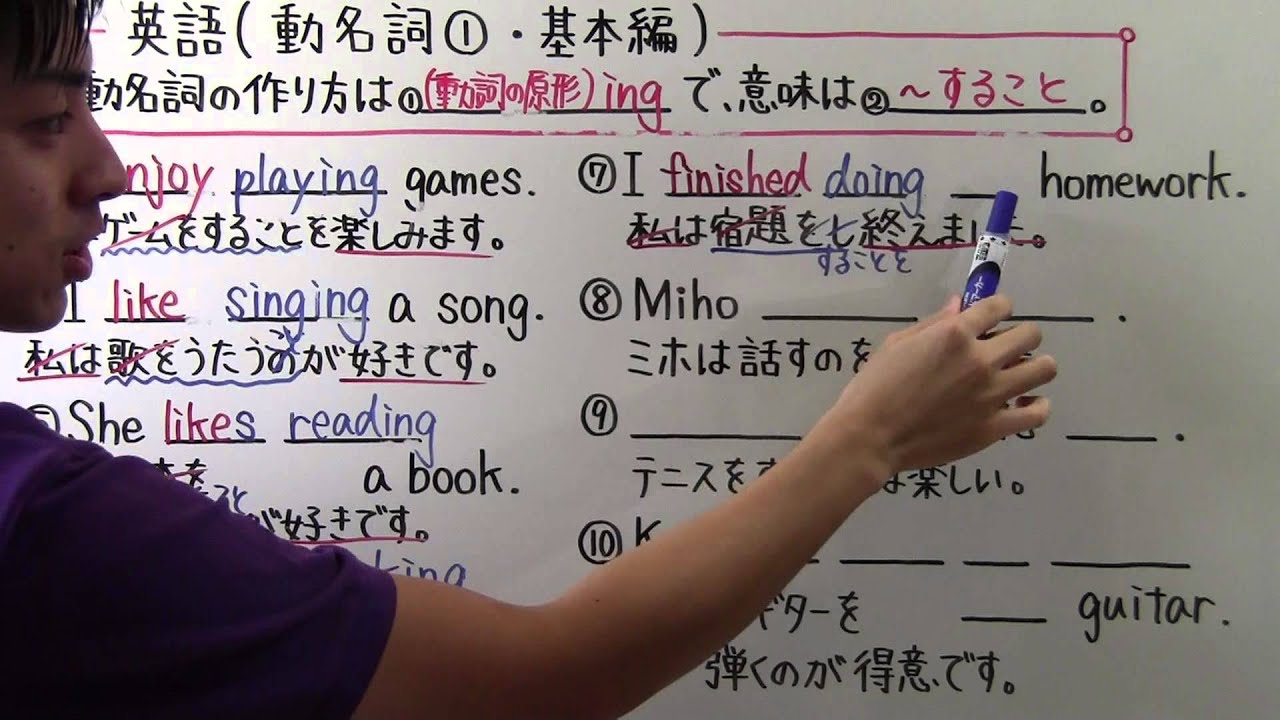 英語(動名詞①・基本編)
動名詞の作り方は①(動詞の原形)ingで、意味は②～すること。
enjoy playing games.
ゲームをすることを楽しみます。
I like singing a song.
私は歌をうたうのが好きです。
こと
⑤She likes reading
a book.
本を
こと
が好きです。
king
⑦I finished doing ___ homework.
私は宿題を 終えました。
することを
⑧Miho ___ ___.
ミホは話すのを
⑨ ___ ___.
テニスを は楽しい。
⑩K ___ ___ ___ ___
___ guitar.
ギターを
弾くのが得意です。